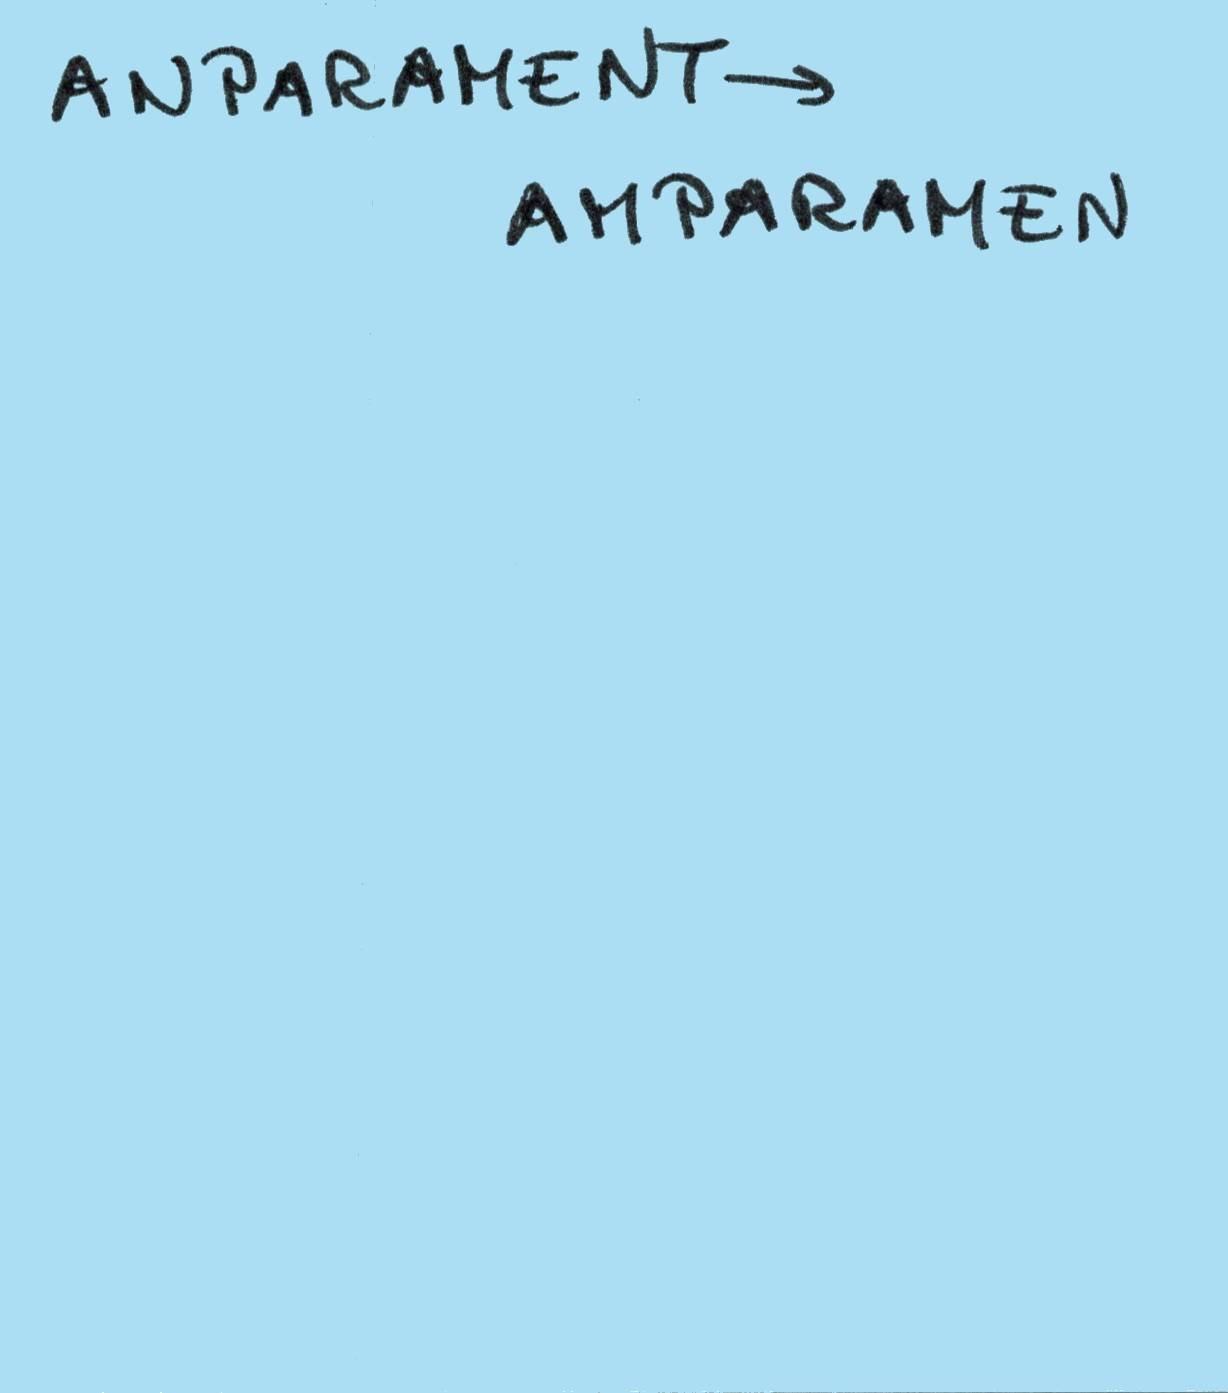 ANPARAMENT →
AMPARAMEN